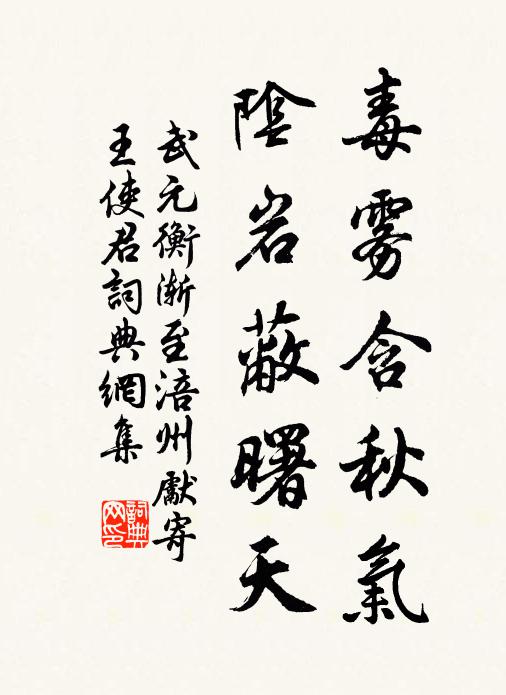 毒雾含秋氣
陰岩蔽曙天
武元衡漸至涪州獻寄
王使君詞典網集
詞典网印